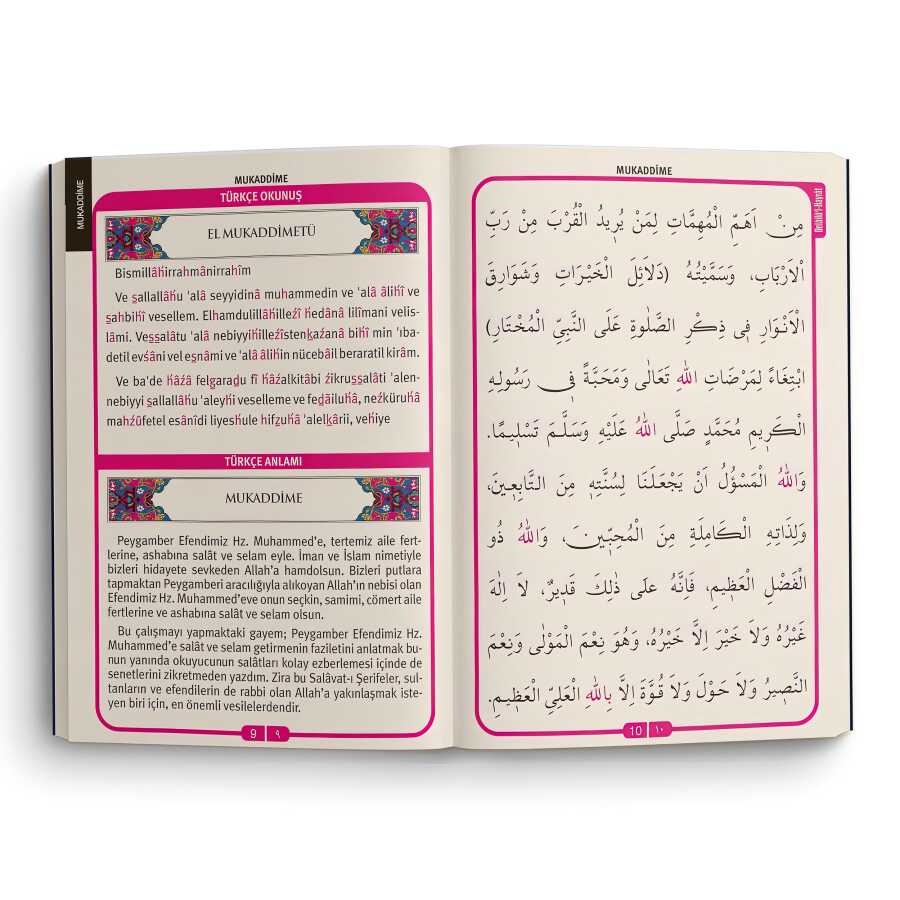 MUKADDİME
MUKADDİME
TÜRKÇE OKUNUŞ
EL MUKADDİMETÜ
Bismillâhirrahmânirrahîm
Ve sallallâhu 'alâ seyyidinâ muhammedin ve 'alâ âlihî ve
sahbihî vesellem. Elhamdulillâhillezî hedânâ lilîmani velis-
lâmi. Vessalâtu 'alâ nebiyyihillezîstenkazanâ bihî min 'ıba-
detil evsâni vel esnâmi ve 'alâ âlihin nücebâil beraratil kirâm.
Ve ba'de hâzâ felgaradu fî hâzalkitâbi zikrussalâti 'alen-
nebiyyi sallallâhu 'aleyhi veselleme ve fedâiluhâ, nezküruhâ
mahzûfetel esânîdi liyeshule hifzuhâ 'alelkârii, vehiye
TÜRKÇE ANLAMI
MUKADDİME
Peygamber Efendimiz Hz. Muhammed'e, tertemiz aile fert-
lerine, ashabına salât ve selam eyle. İman ve İslam nimetiyle
bizleri hidayete sevkeden Allah'a hamdolsun. Bizleri putlara
tapmaktan Peygamberi aracılığıyla alıkoyan Allah'ın nebisi olan
Efendimiz Hz. Muhammed'eve onun seçkin, samimi, cömert aile
fertlerine ve ashabına salât ve selam olsun.
Bu çalışmayı yapmaktaki gayem; Peygamber Efendimiz Hz.
Muhammed'e salât ve selam getirmenin faziletini anlatmak bu-
nun yanında okuyucunun salâtları kolay ezberlemesi içinde de
senetlerini zikretmeden yazdım. Zira bu Salâvat-ı Şerifeler, sul-
tanların ve efendilerin de rabbi olan Allah'a yakınlaşmak iste-
yen biri için, en önemli vesilelerdendir.
9 ٩
MUKADDİME
Delâilü'l-Hayrât
مِنْ اَهَمِّ الْمُهِمَّاتِ لِمَنْ يُرِيدُ الْقُرْبَ مِنْ رَبِّ
الْاَرْبَابِ، وَسَمَّيْتُهُ (دَلَائِلَ الْخَيْرَاتِ وَشَوَارِقَ
الْاَنْوَارِ فِى ذِكْرِ الصَّلٰوةِ عَلَى النَّبِيِّ الْمُخْتَارِ)
ابْتِغَاءً لِمَرْضَاتِ اللّٰهِ تَعَالٰى وَمَحَبَّةً فِى رَسُولِهِ
الْكَرِيمِ مُحَمَّدٍ صَلَّى اللّٰهُ عَلَيْهِ وَسَلَّمَ تَسْلِيمًا.
وَاللّٰهُ الْمَسْؤُلُ اَنْ يَجْعَلَنَا لِسُنَّتِهِ مِنَ التَّابِعِينَ،
وَلِذَاتِهِ الْكَامِلَةِ مِنَ الْمُحِبِّينَ، وَاللّٰهُ ذُو
الْفَضْلِ الْعَظِيمِ، فَاِنَّهُ عَلٰى ذٰلِكَ قَدِيرٌ، لَا اِلٰهَ
غَيْرُهُ وَلَا خَيْرَ اِلَّا خَيْرُهُ، وَهُوَ نِعْمَ الْمَوْلٰى وَنِعْمَ
النَّصِيرُ وَلَا حَوْلَ وَلَا قُوَّةَ اِلَّا بِاللّٰهِ الْعَلِيِّ الْعَظِيمِ.
10 ١٠